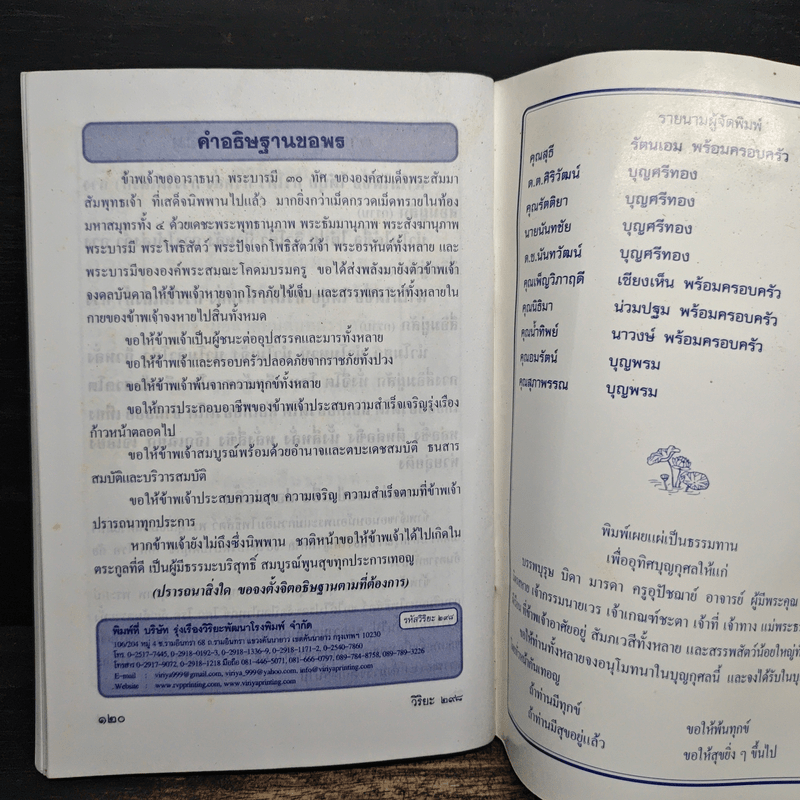 คำอธิษฐานขอพร
ข้าพเจ้าขออาราธนา พระบารมี ๓๐ ทัศ ขององค์สมเด็จพระสัมมา
สัมพุทธเจ้า ที่เสด็จนิพพานไปแล้ว มากยิ่งกว่าเม็ดกรวดเม็ดทรายในท้อง
มหาสมุทรทั้ง ๔ ด้วยเดชะพระพุทธานุภาพ พระธัมมานุภาพ พระสังฆานุภาพ
พระบารมี พระโพธิสัตว์ พระปัจเจกโพธิสัตว์เจ้า พระอรหันต์ทั้งหลาย และ
พระบารมีขององค์พระสมณะโคดมบรมครู ขอได้ส่งพลังมายังตัวข้าพเจ้า
จงดลบันดาลให้ข้าพเจ้าหายจากโรคภัยไข้เจ็บ และสรรพเคราะห์ทั้งหลายใน
กายของข้าพเจ้าจงหายไปสิ้นทั้งหมด
ขอให้ข้าพเจ้าเป็นผู้ชนะต่ออุปสรรคและมารทั้งหลาย
ขอให้ข้าพเจ้าและครอบครัวปลอดภัยจากราชภัยทั้งปวง
ขอให้ข้าพเจ้าพ้นจากความทุกข์ทั้งหลาย
ขอให้การประกอบอาชีพของข้าพเจ้าประสบความสำเร็จเจริญรุ่งเรือง
ก้าวหน้าตลอดไป
ขอให้ข้าพเจ้าสมบูรณ์พร้อมด้วยอำนาจและตบะเดชสมบัติ ธนสาร
สมบัติและบริวารสมบัติ
ขอให้ข้าพเจ้าประสบความสุข ความเจริญ ความสำเร็จตามที่ข้าพเจ้า
ปรารถนาทุกประการ
หากข้าพเจ้ายังไม่ถึงซึ่งนิพพาน ชาติหน้าขอให้ข้าพเจ้าได้ไปเกิดใน
ตระกูลที่ดี เป็นผู้มีธรรมะบริสุทธิ์ สมบูรณ์พูนสุขทุกประการเทอญ
(ปรารถนาสิ่งใด ขอจงตั้งจิตอธิษฐานตามที่ต้องการ)
พิมพ์ที่ บริษัท รุ่งเรืองวิริยะพัฒนาโรงพิมพ์ จำกัด
รหัสวิริยะ ๒๙๘
106/204 หมู่ 4 ซ.รามอินทรา 68 ถ.รามอินทรา แขวงคันนายาว เขตคันนายาว กรุงเทพฯ 10230
โทร. 0-2517-7445, 0-2918-0192-3, 0-2918-1336-9, 0-2918-1171-2, 0-2540-7860
โทรสาร 0-2917-9072, 0-2918-1218 มือถือ 081-446-5071, 081-666-0797, 089-784-8758, 089-789-3226
E-mail : viriya999@gmail.com, viriya_999@yahoo.com, info@viriyaprinting.com
Website : www.rvpprinting.com, www.viriyaprinting.com
๑๒๐
วิริยะ ๒๙๘
รายนามผู้จัดพิมพ์
คุณสุธี รัตนเอม พร้อมครอบครัว
ด.ต.ศิริวัฒน์ บุญศรีทอง
คุณรัตติยา บุญศรีทอง
นายนันทชัย บุญศรีทอง
ด.ช.นันทวัฒน์ บุญศรีทอง
คุณเพ็ญวิภาฤดี เชียงเห็น พร้อมครอบครัว
คุณนิธิมา น่วมปฐม พร้อมครอบครัว
คุณน้ำทิพย์ นาวงษ์ พร้อมครอบครัว
คุณอมรัตน์ บุญพรม
คุณสุภาพรรณ บุญพรม
พิมพ์เผยแผ่เป็นธรรมทาน
เพื่ออุทิศบุญกุศลให้แก่
บรรพบุรุษ บิดา มารดา ครูอุปัชฌาย์ อาจารย์ ผู้มีพระคุณ
เจ้ากรรมนายเวร เจ้าเกณฑ์ชะตา เจ้าที่ เจ้าทาง แม่พระธร
ที่ข้าพเจ้าอาศัยอยู่ สัมภเวสีทั้งหลาย และสรรพสัตว์น้อยใหญ่ทั้
ขอให้ท่านทั้งหลายจงอนุโมทนาในบุญกุศลนี้ และจงได้รับในบุ
เทอญ
ถ้าท่านมีทุกข์ ขอให้พ้นทุกข์
ถ้าท่านมีสุขอยู่แล้ว ขอให้สุขยิ่ง ๆ ขึ้นไป